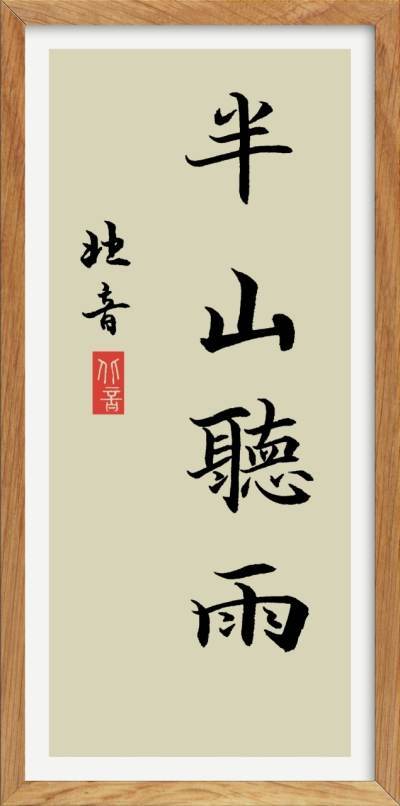 半山聽雨
北音
北音